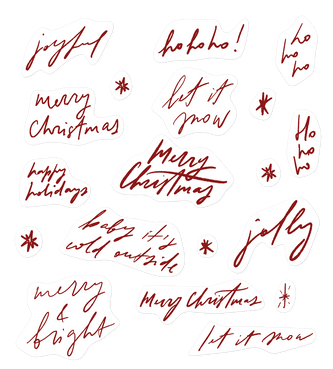 joyful
hohoho!
ho
ho
ho
merry
Christmas
let it
snow
Merry
Christmas
Ho
ho
ho
happy
holidays
baby it's
cold outside
jolly
merry
&
bright
Merry Christmas
let it snow